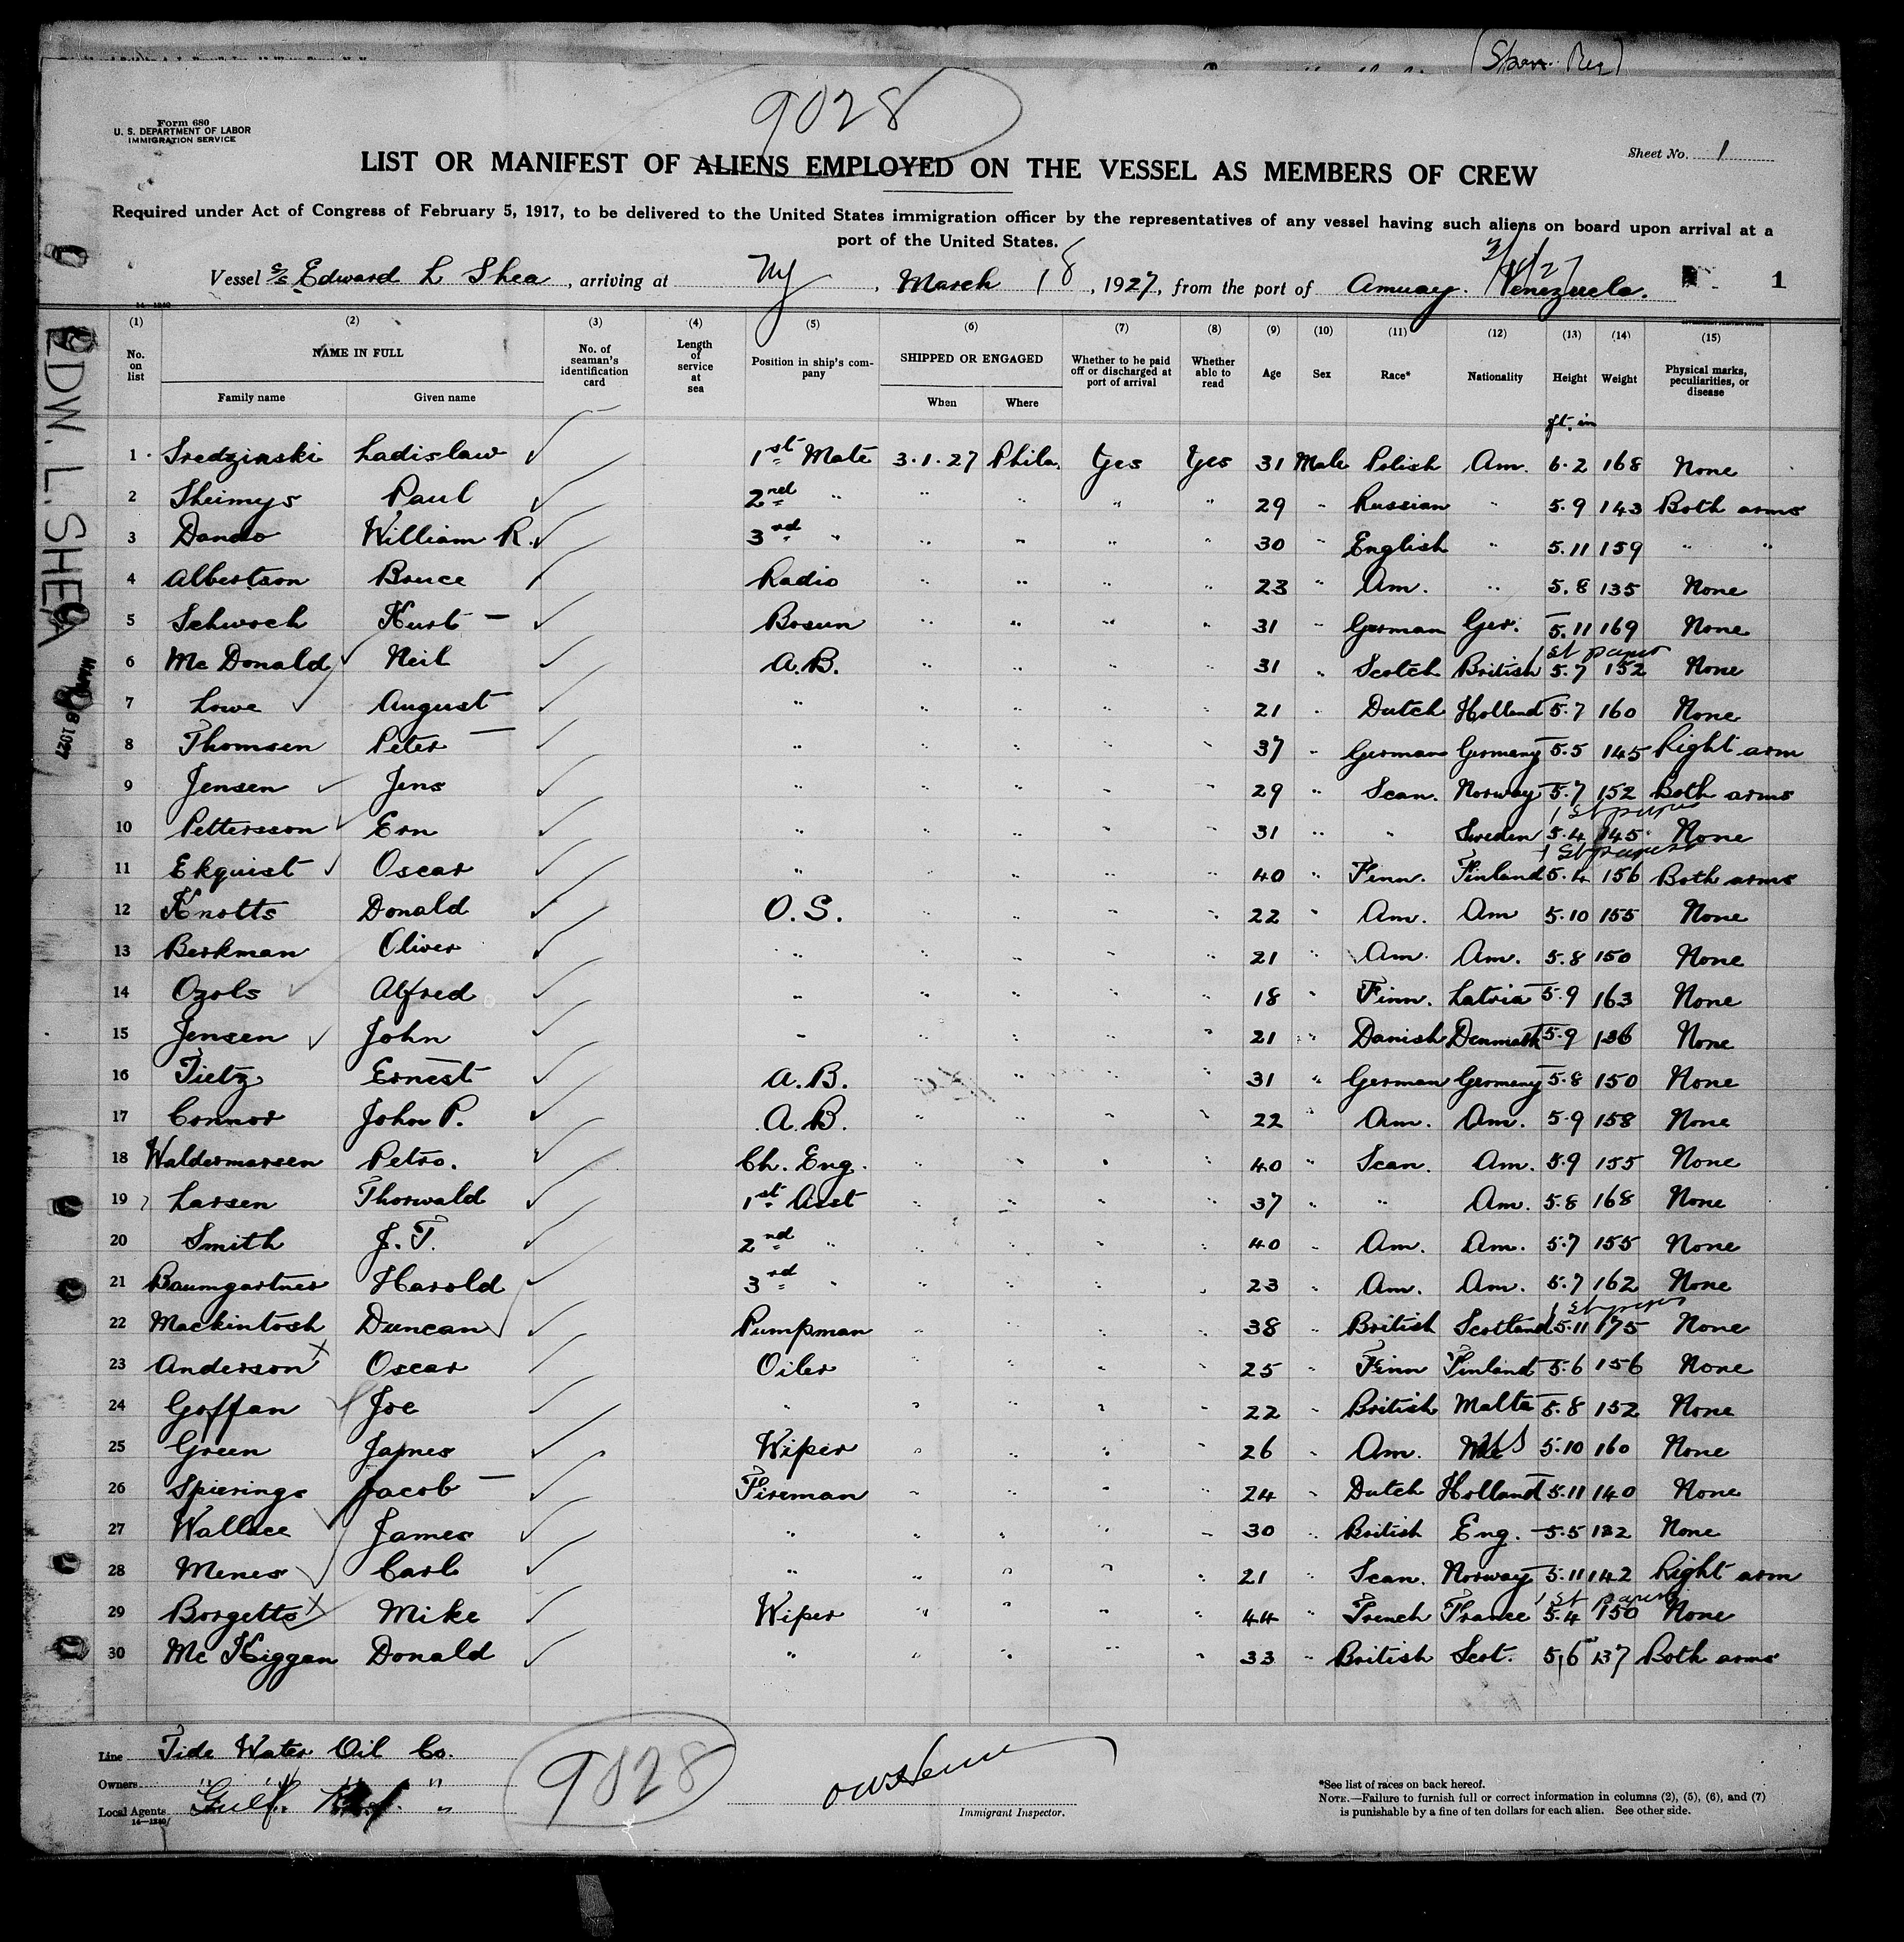 (Span. Rec)
9028
Form 680
U. S. DEPARTMENT OF LABOR
IMMIGRATION SERVICE
Sheet No. 1
LIST OR MANIFEST OF ALIENS EMPLOYED ON THE VESSEL AS MEMBERS OF CREW
Required under Act of Congress of February 5, 1917, to be delivered to the United States immigration officer by the representatives of any vessel having such aliens on board upon arrival at a
port of the United States.
Vessel S/S Edward L Shea, arriving at NY, March 18, 1927, from the port of Amuay. Venezuela. 1
14—1240
EDW. L. SHEA
MAR 18 1927
(1) (2) (3) (4) (5) (6) (7) (8) (9) (10) (11) (12) (13) (14) (15)
No. on list NAME IN FULL No. of seaman's identification card Length of service at sea Position in ship's company SHIPPED OR ENGAGED Whether to be paid off or discharged at port of arrival Whether able to read Age Sex Race* Nationality Height Weight Physical marks, peculiarities, or disease
Family name Given name When Where
ft. in
1 Sredzinski Ladislaw 1st Mate 3.1.27 Phila. Yes Yes 31 Male Polish Am. 6.2 168 None
2 Shimys Paul 2nd " " " " " 29 " Russian " 5.9 143 Both arms
3 Dando William R. 3rd " " " " " 30 " English " 5.11 159 " "
4 Albertson Bruce Radio " " " 23 " Am. " 5.8 135 None
5 Schwoch Kurt Bosun " " " " 31 " German Ger. 5.11 169 None
1st papers
6 Mc Donald Neil A.B. " " " " 31 " Scotch British 5.7 152 None
7 Lowe August " " " " " 21 " Dutch Holland 5.7 160 None
8 Thomsen Peter " " " " " 37 " German Germany 5.5 145 Right arm
9 Jensen Jens " " " " " 29 " Scan. Norway 5.7 152 Both arms
1st papers
10 Pettersson Ern " " " " " 31 " " Sweden 5.4 145 None
1st papers
11 Ekquist Oscar " " " " " 40 " Finn. Finland 5.4 156 Both arms
12 Knotts Donald O.S. " " " " 22 " Am. Am 5.10 155 None
13 Berkman Oliver " " " " " 21 " Am. Am. 5.8 150 None
14 Ozols Alfred " " " " " 18 " Finn. Latvia 5.9 163 None
15 Jensen John " " " " " 21 " Danish Denmark 5.9 136 None
16 Tietz Ernest A.B. " " " " 31 " German Germany 5.8 150 None
17 Connor John P. A.B. " " " " 22 " Am. Am. 5.9 158 None
18 Waldermarsen Petro. Ch. Eng. " " " " 40 " Scan. Am. 5.9 155 None
19 Larsen Thorwald 1st Asst " " " " 37 " " Am. 5.8 168 None
20 Smith J. T. 2nd " " " " " 40 " Am. Am. 5.7 155 None
21 Baumgartner Harold 3rd " " " " " 23 " Am. Am. 5.7 162 None
1st papers
22 Mackintosh Duncan Pumpman " " " " 38 " British Scotland 5.11 175 None
23 Anderson Oscar Oiler " " " " 25 " Finn Finland 5.6 156 None
24 Goffan Joe " " " " " 22 " British Malta 5.8 152 None
25 Green James Wiper " " " " 26 " Am. US 5.10 160 None
26 Spierings Jacob Fireman " " " " 24 " Dutch Holland 5.11 140 None
27 Wallace James " " " " " 30 " British Eng. 5.5 132 None
28 Menes Carl " " " " " 21 " Scan. Norway 5.11 142 Right arm
1st papers
29 Borgetto Mike Wiper " " " " 44 " French France 5.4 150 None
30 Mc Kiggan Donald " " " " " 33 " British Scot. 5,6 137 Both arms
Line Tide Water Oil Co.
Owners " " " "
Local Agents Gulf Ref. "
14—1240
9028
Immigrant Inspector.
*See list of races on back hereof.
NOTE.—Failure to furnish full or correct information in columns (2), (5), (6), and (7)
is punishable by a fine of ten dollars for each alien. See other side.